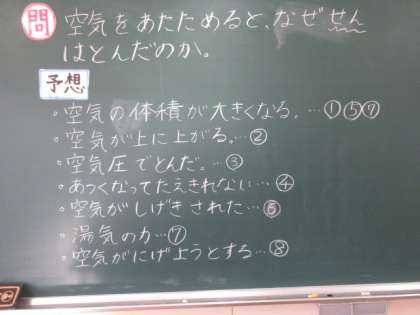 問 空気をあたためると、なぜせん
はとんだのか。
予想
・空気の体積が大きくなる。…①⑤⑦
・空気が上に上がる。…②
・空気圧でとんだ。…③
・あつくなってたえきれない…④
・空気がしげきされた…⑥
・湯気の力…⑦
・空気がにげようとする…⑧